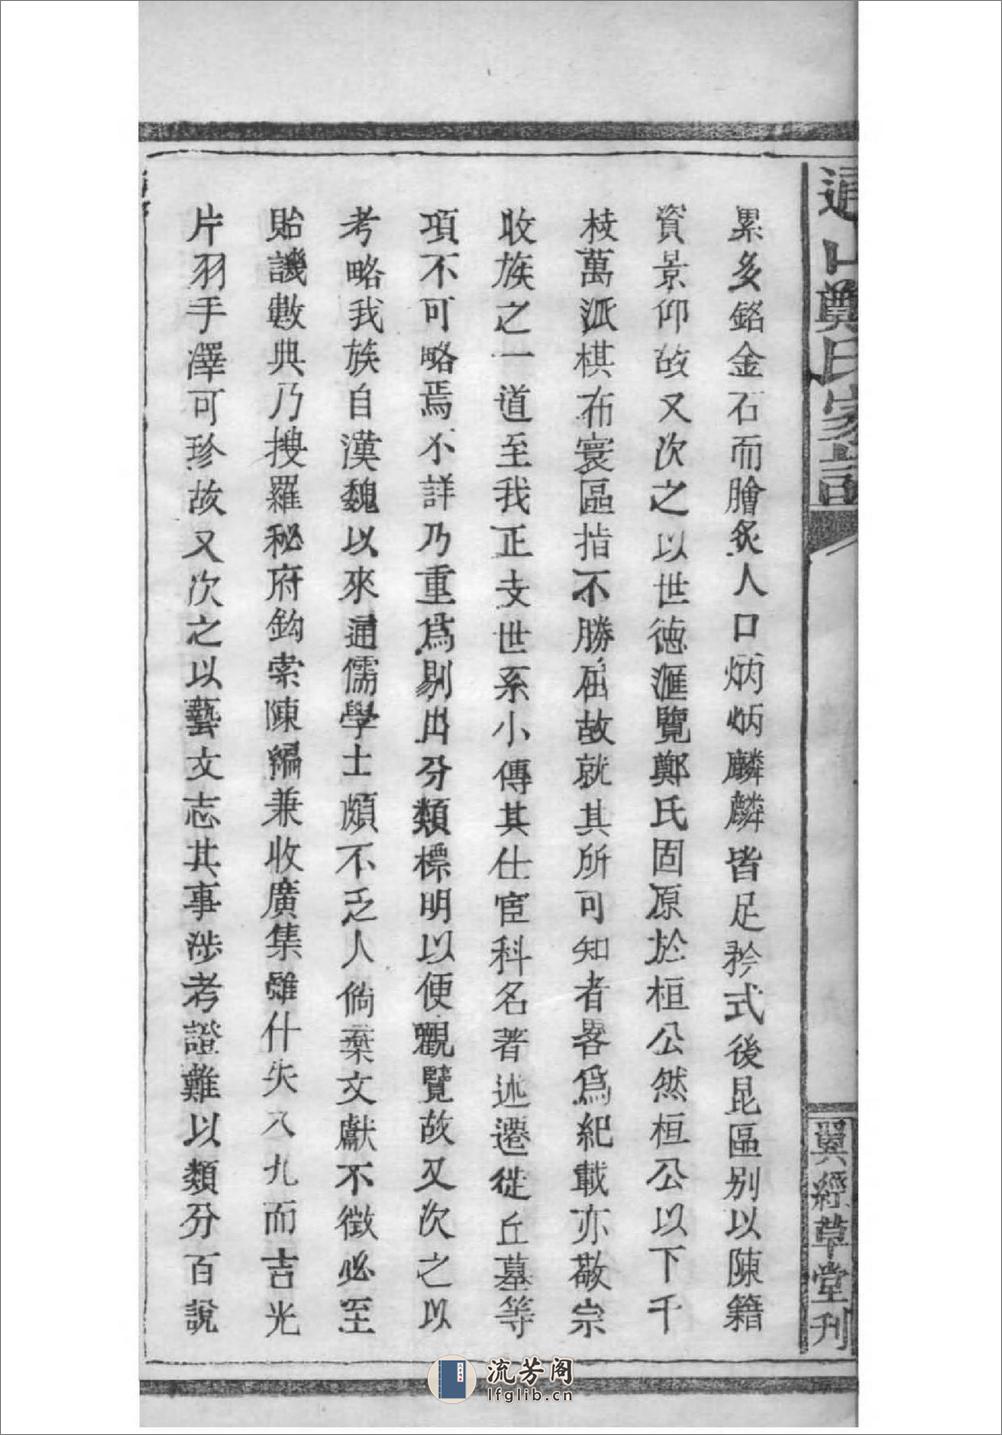 通山鄭氏家譜
翼經草堂刊
累多銘金石而膾炙人口炳炳麟麟皆足矜式後昆區別以陳籍
資景仰故又次之以世德滙覽鄭氏固原於桓公然桓公以下千
枝萬派棋布寰區指不勝屈故就其所可知者畧爲紀載亦敬宗
收族之一道至我正支世系小傳其仕宦科名著述遷徙丘墓等
項不可略焉不詳乃重爲剔出分類標明以便觀覽故又次之以
考略我族自漢魏以來通儒學士頗不乏人倘棄文獻不徵必至
貽譏數典乃搜羅秘府鈎索陳編兼收廣集雖什失八九而吉光
片羽手澤可珍故又次之以藝文志其事涉考證難以類分百說
流芳阁
lfglib.cn